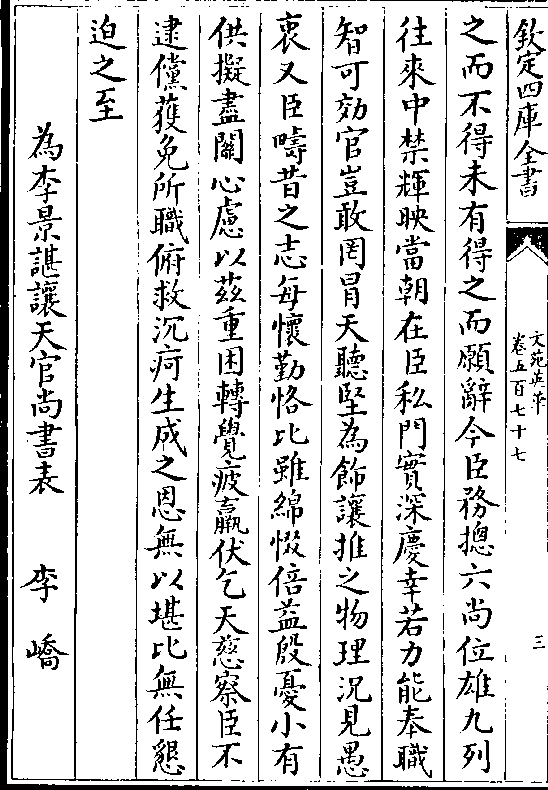 欽定四庫全書
文苑英華
卷五百七十七
三
之而不得未有得之而願辭今臣務揔六尚位雄九列
往來中禁輝映當朝在臣私門實深慶幸若力能奉職
智可効官豈敢罔冒天聽堅為飾讓推之物理況見愚
衷又臣疇昔之志每懷勤恪比雖綿惙倍益殷憂小有
供擬盡關心慮以茲重困轉覺疲羸伏乞天慈察臣不
逮儻獲免所職俯救沉痾生成之恩無以堪比無任懇
迫之至
為李景諶讓天官尚書表 李嶠